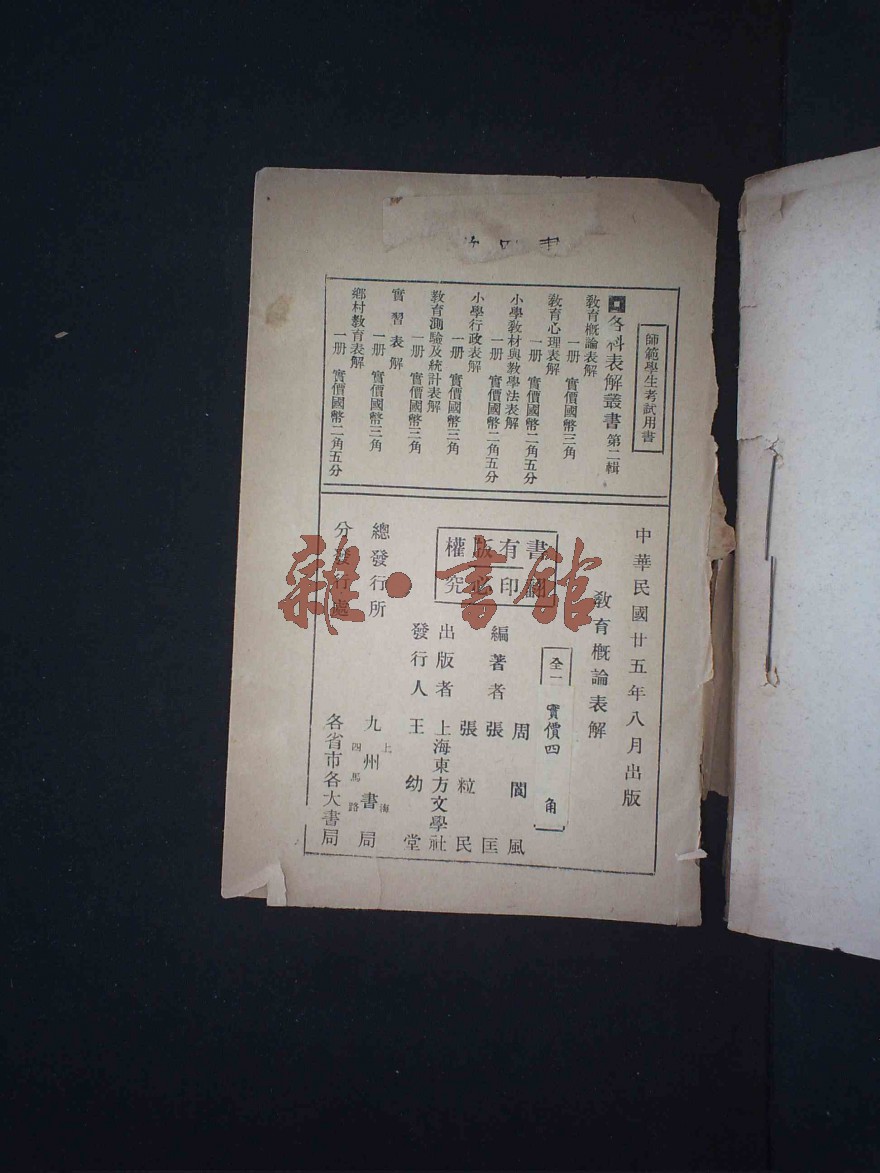 師範學生考試用書
各科表解叢書 第二輯
教育概論表解
一冊 實價國幣三角
教育心理表解
一冊 實價國幣二角五分
小學教材與教學法表解
一冊 實價國幣二角五分
小學行政表解
一冊 實價國幣三角
教育測驗及統計表解
一冊 實價國幣三角
實習表解
一冊 實價國幣三角
鄉村教育表解
一冊 實價國幣二角五分
中華民國廿五年八月出版
教育概論表解
全一
實價四角
書有版權
翻印必究
編著者
周閬風
張匡
張粒民
出版者 上海東方文學社
發行人 王幼堂
總發行所
上海
九州書局
四馬路
分發行處 各省市各大書局
雜·書館